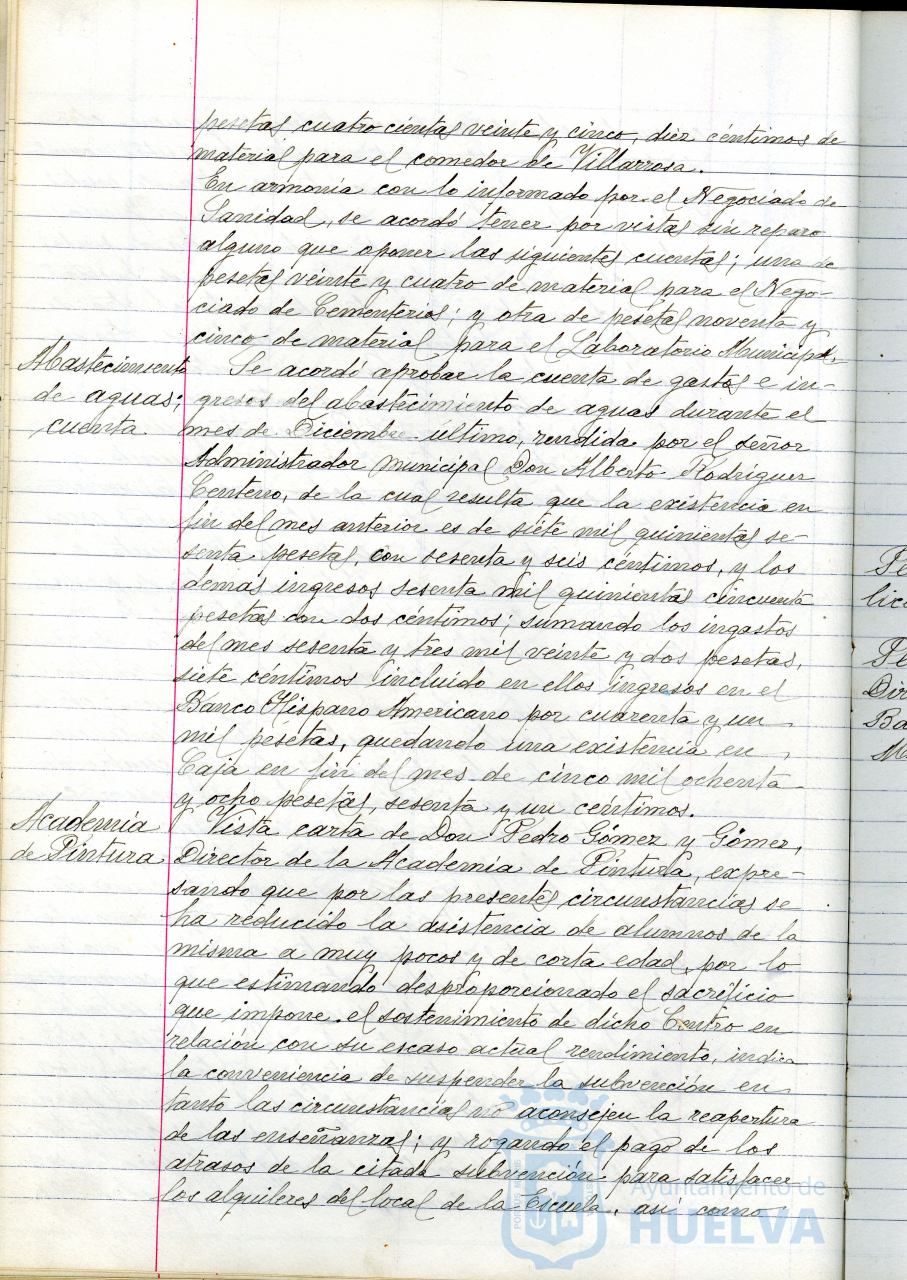 pesetas cuatrocientas veinte y cinco, diez céntimos de
material para el comedor de Villarrosa.
En armonía con lo informado por el Negociado de
Sanidad, se acordó tener por vistas sin reparo
alguno que oponer las siguientes cuentas; una de
pesetas veinte y cuatro de material para el Nego-
ciado de Cementerios; y otra de pesetas noventa y
cinco de material para el Laboratorio Municipal.
Abastecimiento
de aguas;
cuenta
Se acordó aprobar la cuenta de gastos e in-
gresos del abastecimiento de aguas durante el
mes de Diciembre ultimo, rendida por el señor
Administrador municipal Don Alberto Rodriguez
Centeno, de la cual resulta que la existencia en
fin del mes anterior es de siete mil quinientas se-
senta pesetas, con sesenta y seis céntimos, y los
demás ingresos sesenta mil quinientas cincuenta
pesetas con dos céntimos; sumando los ingastos
del mes sesenta y tres mil veinte y dos pesetas,
siete céntimos incluido en ellos ingresos en el
Banco Hispano Americano por cuarenta y un
mil pesetas, quedando una existencia en
Caja en fin del mes de cinco mil ochenta
y ocho pesetas, sesenta y un centimos.
Academia
de Pintura
Vista carta de Don Pedro Gómez y Gómez,
Director de la Academia de Pintura, expre-
sando que por las presentes circunstancias se
ha reducido la asistencia de alumnos de la
misma a muy pocos y de corta edad, por lo
que estimando desproporcionado el sacrificio
que impone el sostenimiento de dicho Centro en
relación con su escaso actual rendimiento, indica
la conveniencia de suspender la subvención en
tanto las circunstancias no aconsejen la reapertura
de las enseñanzas; y rogando el pago de los
atrasos de la citada subvención para satisfacer
los alquileres del local de la Escuela, así como
Ayuntamiento de
HUELVA
Pe
lic
Pe
Dir
Ba